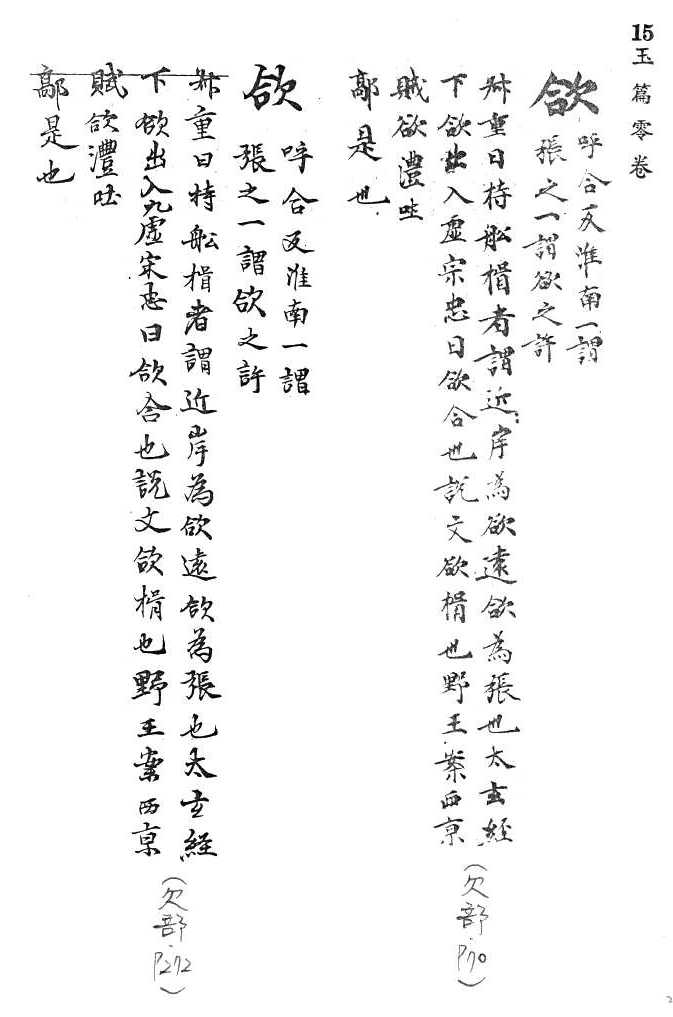 15 玉篇零卷
欱
呼合反淮南一謂
張之一謂欱之許
州重曰持舩楫者謂近岸為欱遠欱為張也太玄経
下欱出入虚宗忠曰欱合也說文欱楫也野王案西京
賦欱澧吐
鄗是也
(欠部.P70)
欱
呼合反淮南一謂
張之一謂欱之許
州重曰持舩楫者謂近岸為欱遠欱為張也太玄経
下欱出入九虚宋忠曰欱合也説文欱楫也野王案西京
賦欱澧吐
鄗是也
(欠部.P272)